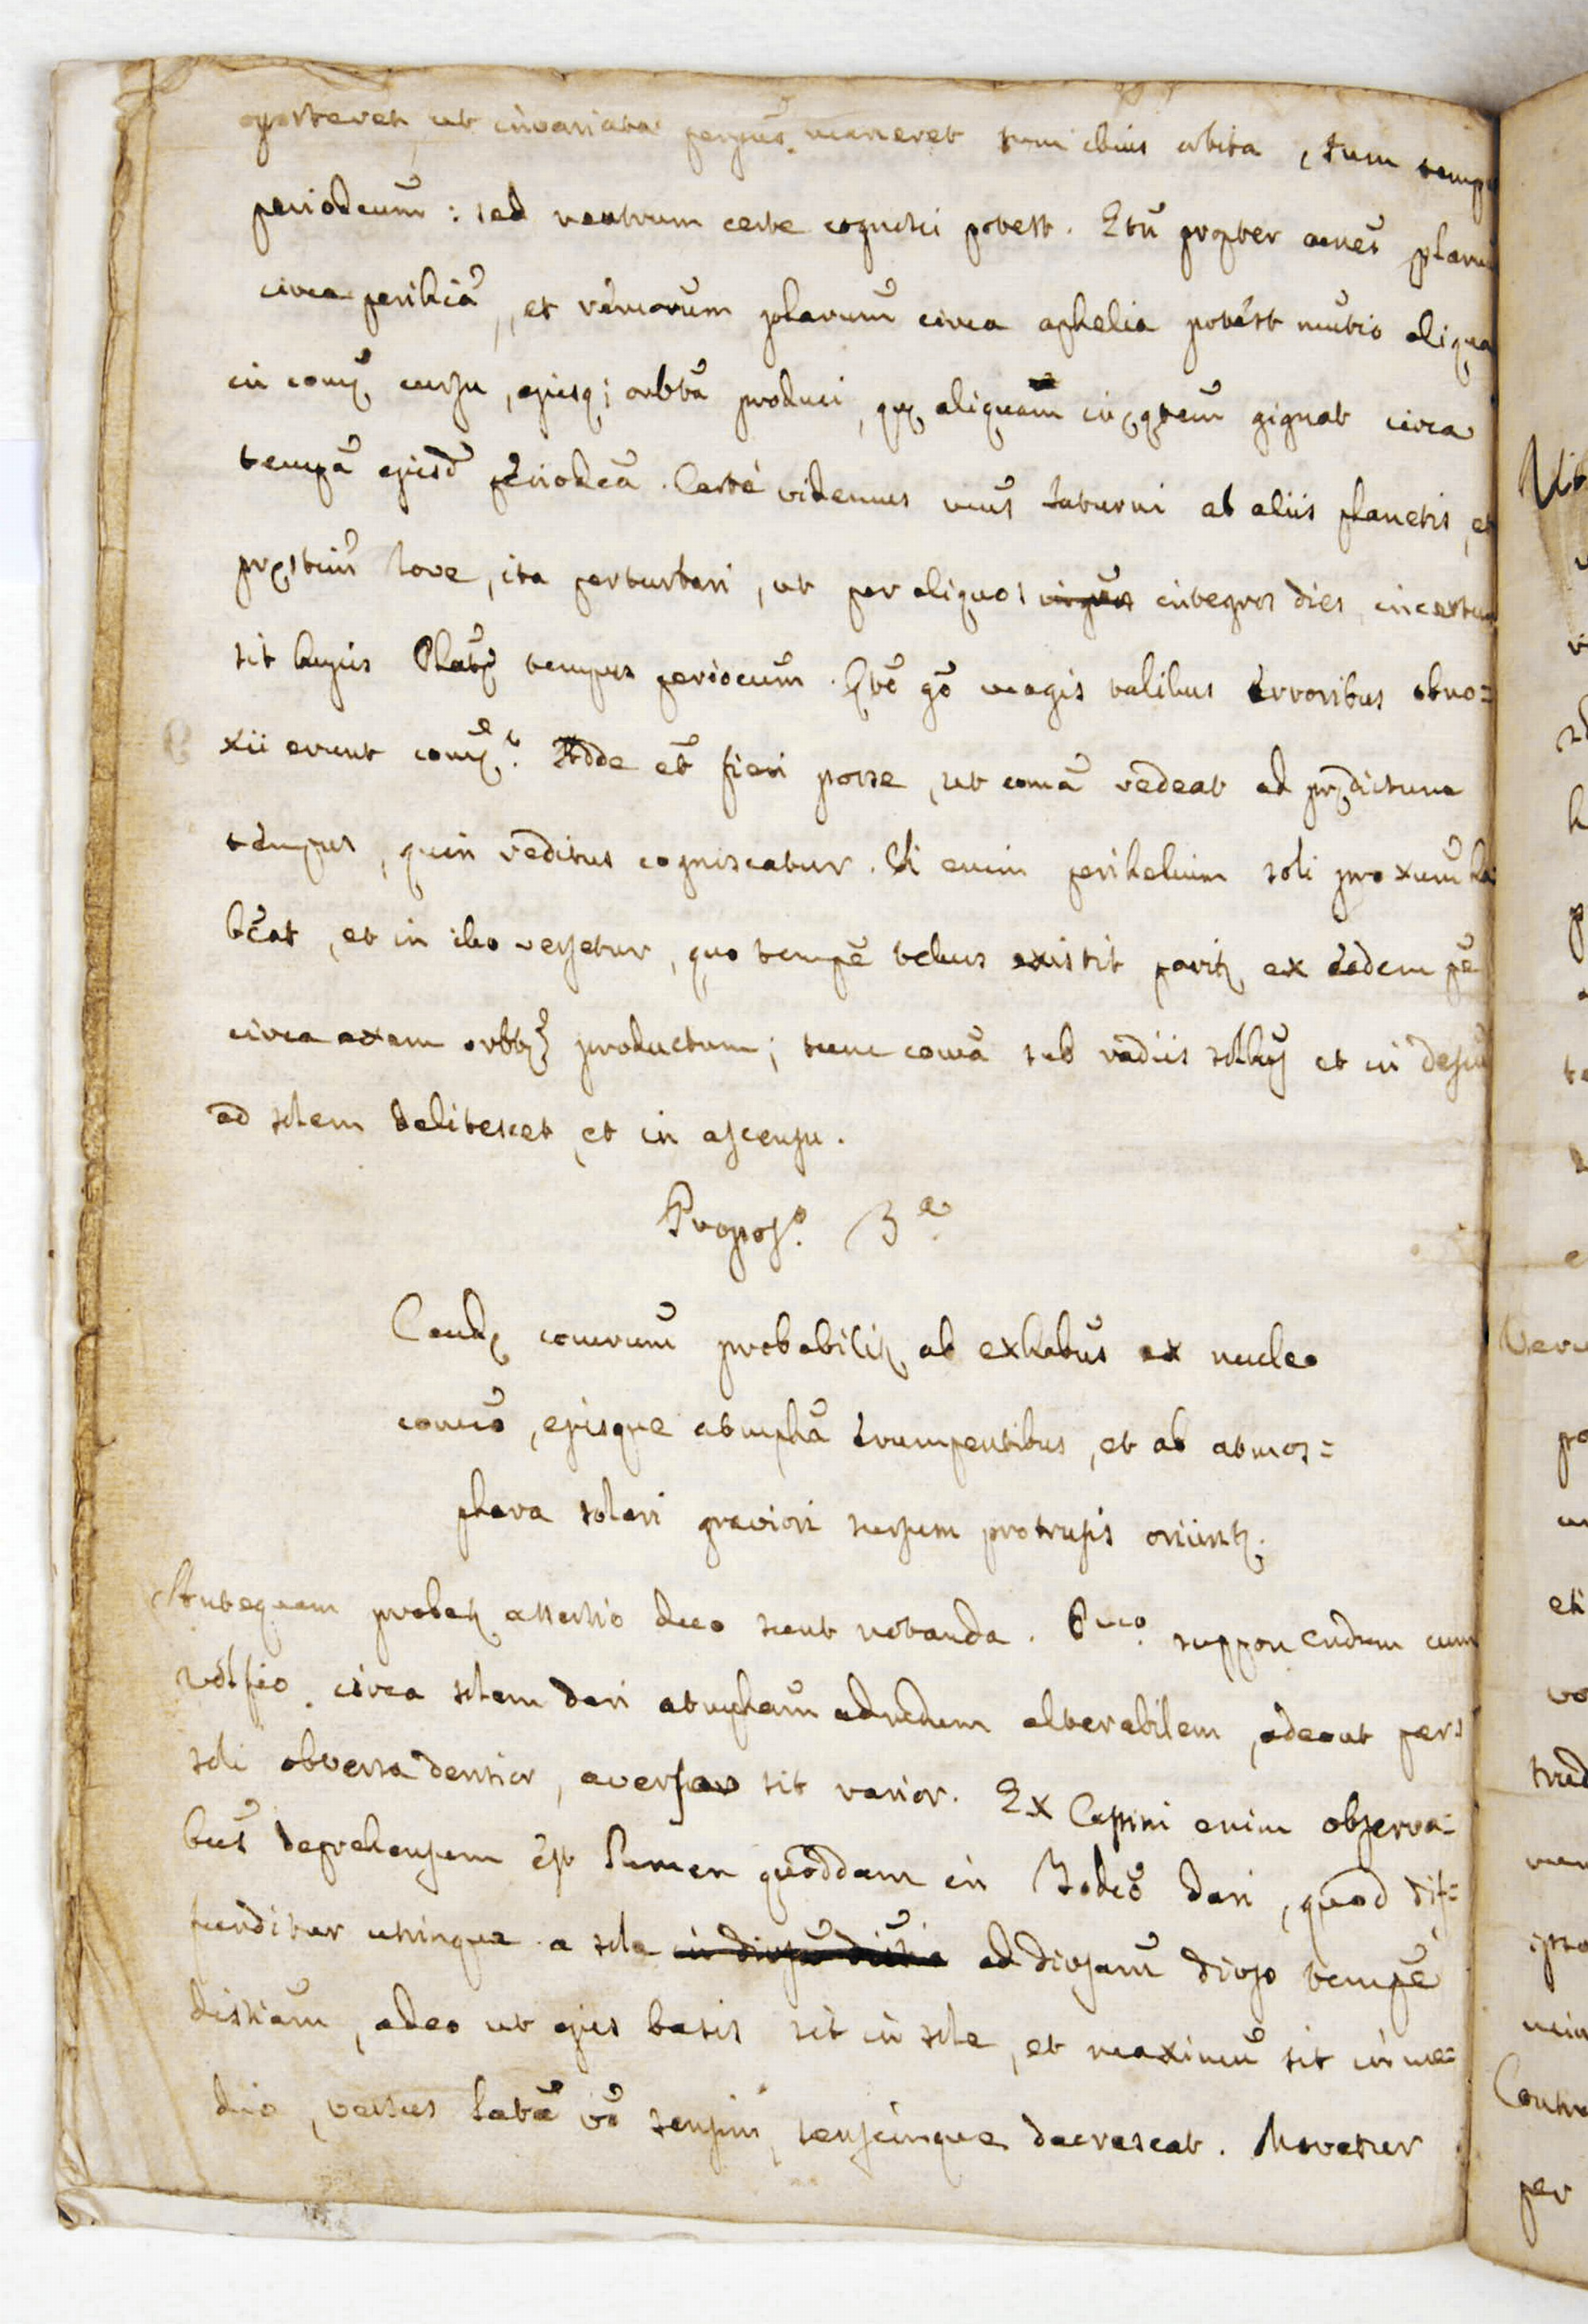 oporteret, ut invariata penjus maneret tum illius orbita, tum temp
periodcum: sed neutrum certe cognosci potest. Etũ propter acnes plan
circa perihlia, et rẽmotorum planum circa aphelia potest mutio aliqua
in comẹ cursu, ejusq; orbta produci, quẹ aliquam inẹqtem gignat circa
tempa ejusd periodca. Certe videmus mus Saturni ab aliis planetis, et
prẹstim Iove, ita perturbari, ut per aliquos integros dies incertum
sit hujus Platẹ tempus periocum. Qto go magis talibus Erroribus obno=
xii erunt comẹẹ? Adde et fieri posse, ut coma redeat ad prẹdictum
tempus, quin reditus cogniscatur. Si enim perihelium soli proxum ha
beat, et in illo versetur, quo tempe tellus existit parit ex eadem pe
circa axem orbtẹ productum; tunc coma sub radiis solibus et in descu
ad solem delitescet, et in ascensu.
Propos.o 3.a
Caudẹ comrum probabilit ab exhlabus ex nucleo
comco, ejusque atmpha Erumpentibus, et ab atmos=
phera solari graviori sursum protrusis oriunt.
Antequam probet assertio duo sunt notanda. Pmo. supponendum cum
Volfio circa solem dari atmpham admdum alterabilem, adeout pars
soli obversa densior, aversa sit rarior. Ex Cassini enim observa=
bus deprehensum est Lumen quoddam in Zodco dari, quod dif=
funditur utrinque a sole in divsa distia ad divsam divso tempe
distiam, adeo ut ejus basis sit in sole, et maximum sit in me=
dio, versus latea vo sensim, sensimque decrescat. Movetur